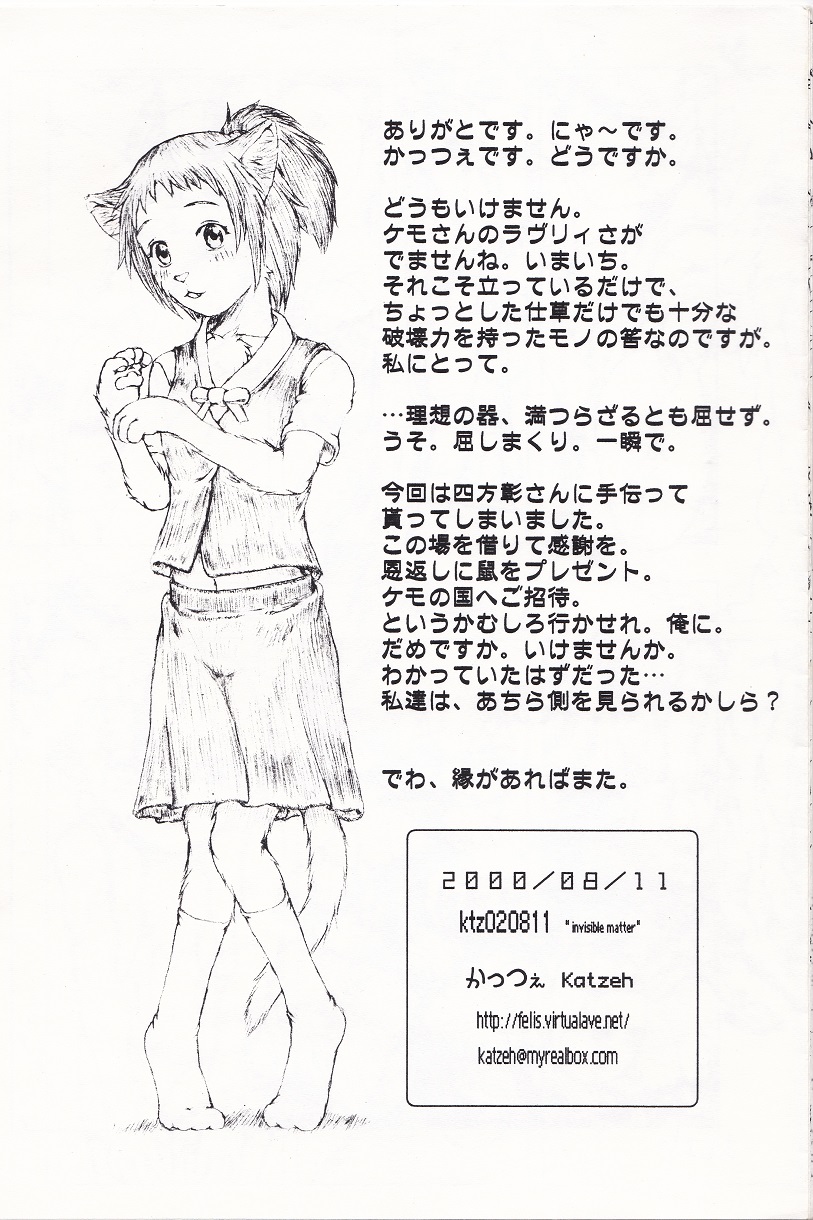 ありがとです。にゃ～です。
かっつぇです。どうですか。
どうもいけません。
ケモさんのラヴリィさが
でませんね。いまいち。
それこそ立っているだけで、
ちょっとした仕草だけでも十分な
破壊力を持ったモノの筈なのですが。
私にとって。
…理想の器、満つらざるとも屈せず。
うそ。屈しまくり。一瞬で。
今回は四方彰さんに手伝って
貰ってしまいました。
この場を借りて感謝を。
恩返しに鼠をプレゼント。
ケモの国へご招待。
というかむしろ行かせれ。俺に。
だめですか。いけませんか。
わかっていたはずだった…
私達は、あちら側を見られるかしら？
でわ、縁があればまた。
2000/08/11
ktz020811 "invisible matter"
かっつぇ Katzeh
http://felis.virtualave.net/
katzeh@myrealbox.com